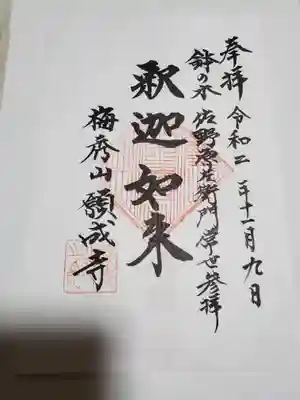 奉拝 令和二年十一月九日
鉢の木 佐野源左衛門常世参拝
釈迦如来
梅秀山願成寺